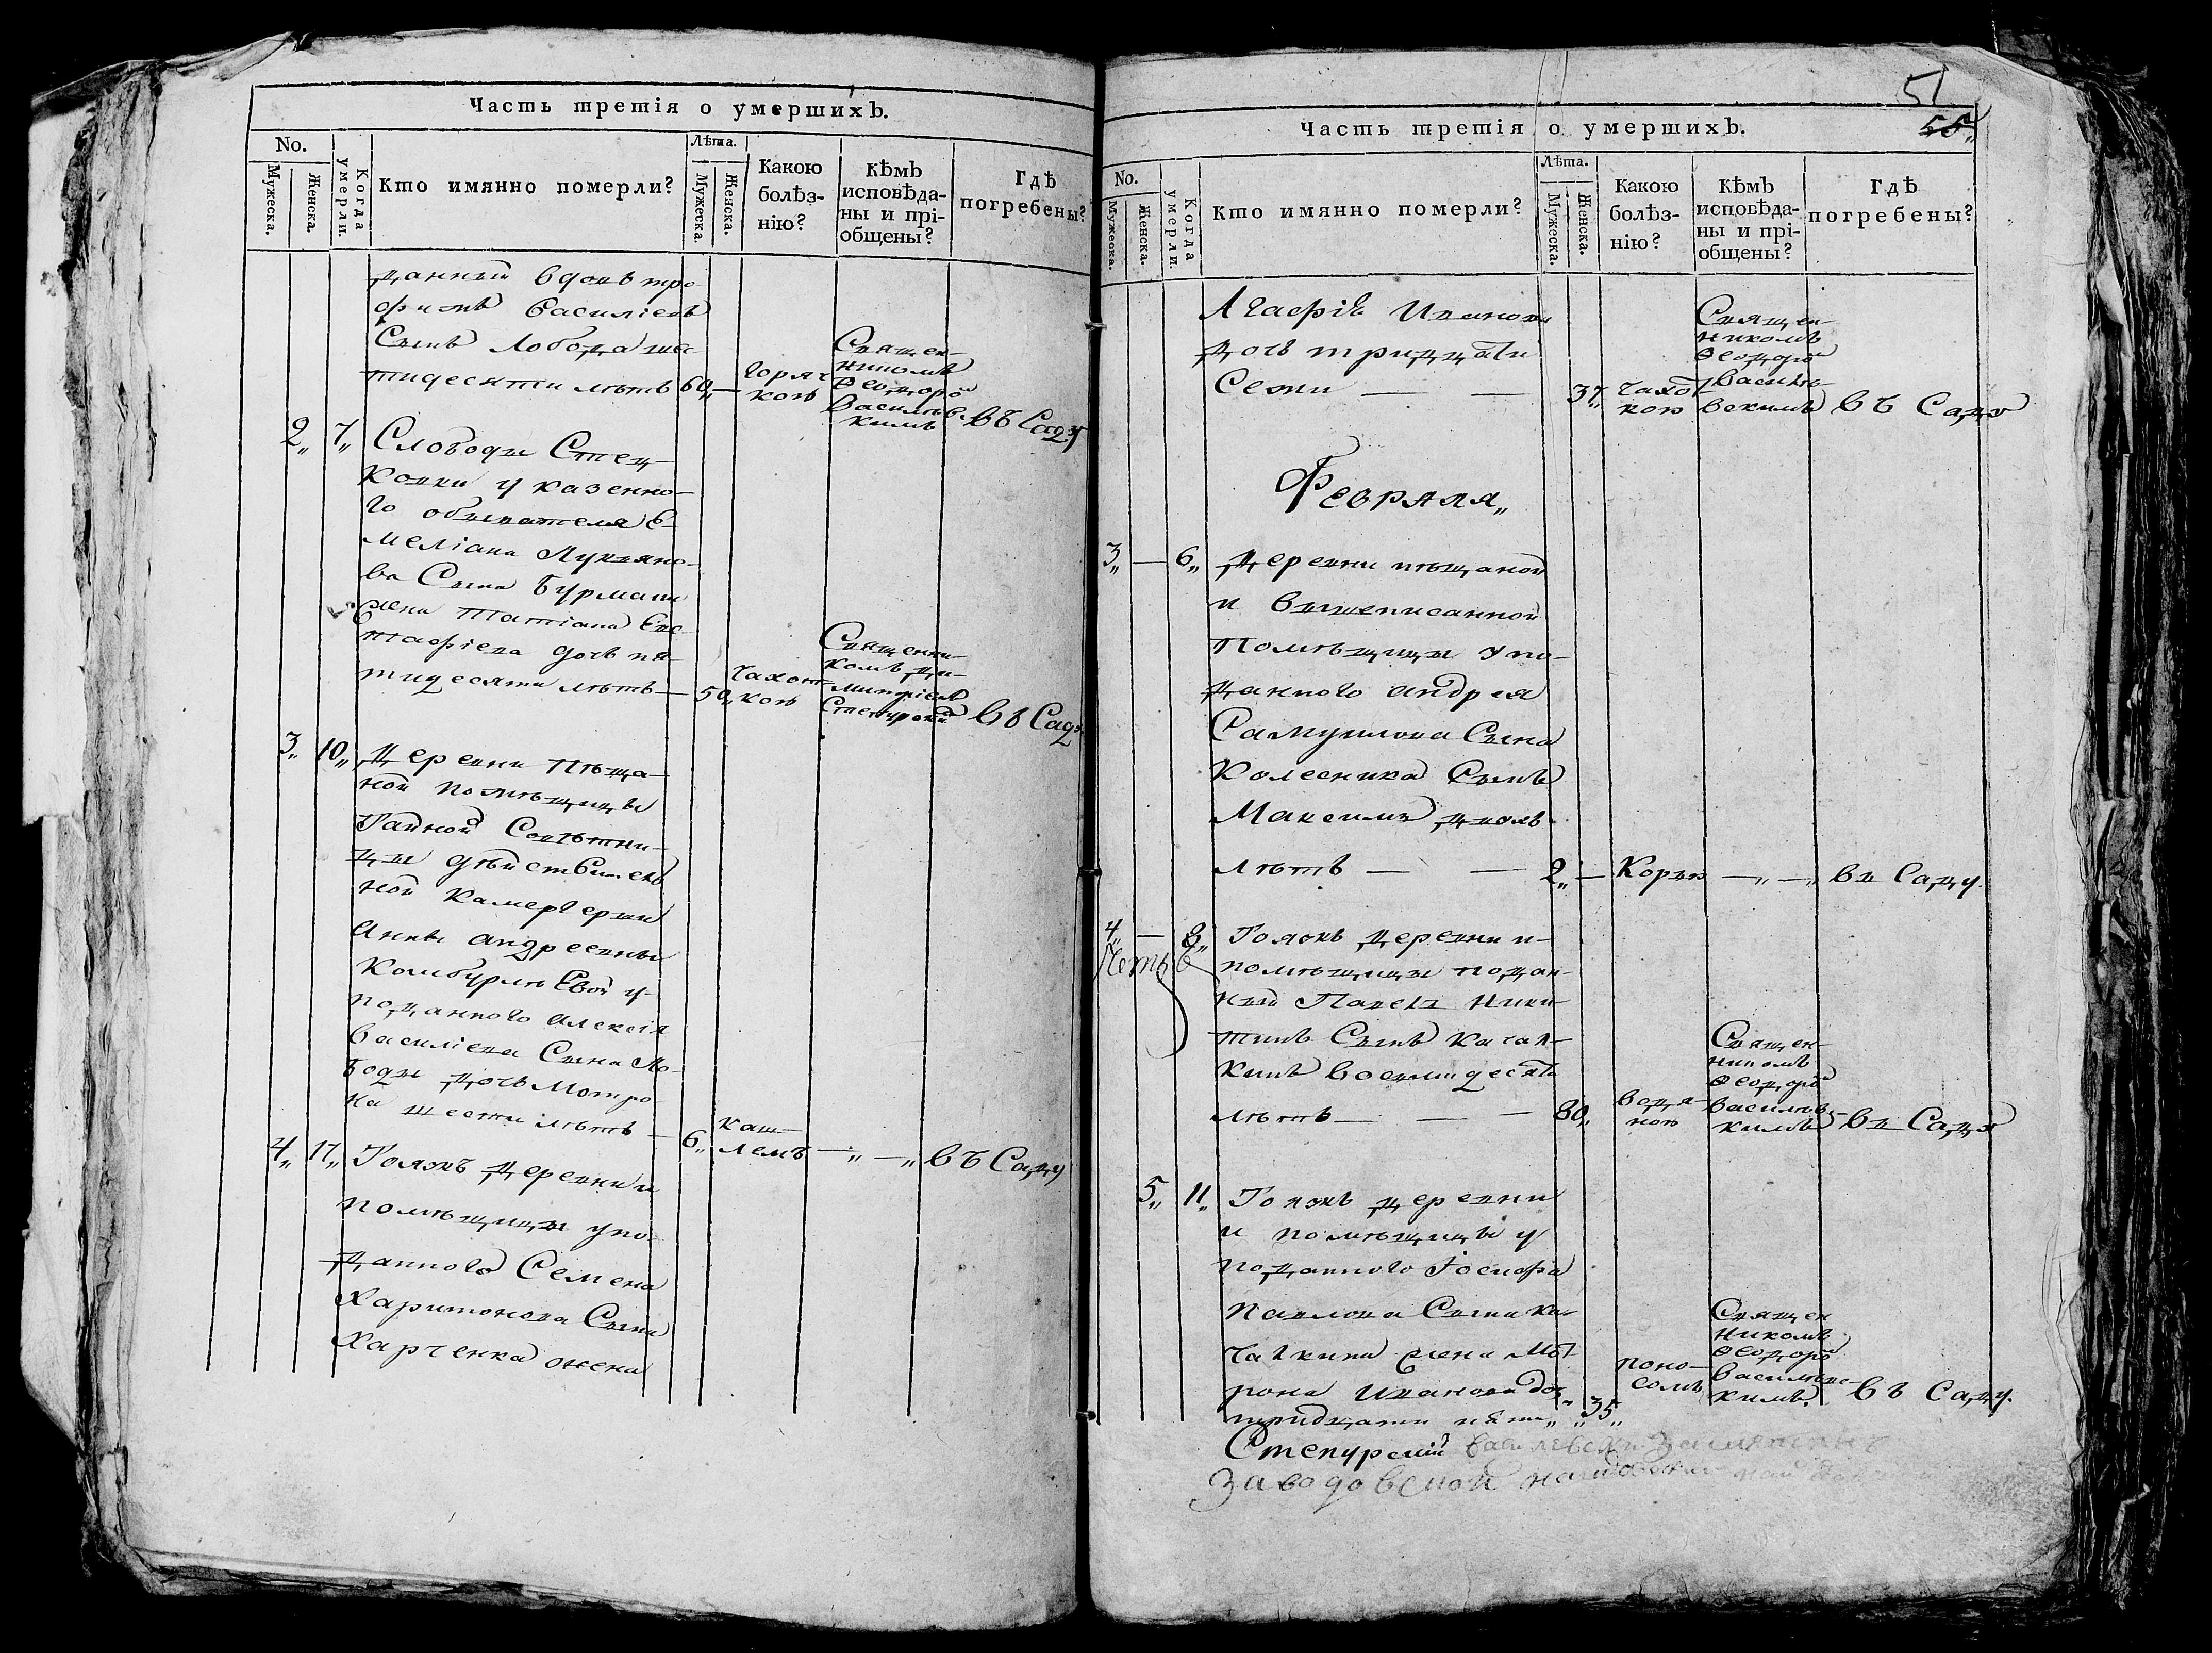 Часть третія о умершихъ.
No.
Мужеска.
Женска.
Когда умерли.
Кто имянно померли?
Лѣта.
Мужеска.
Женска.
Какою болѣз-
нію?
Кѣмъ
исповѣда-
ны и прі-
общены?
Гдѣ
погребены?
данный вдовъ тро
фимъ Василіевъ
Сынъ Лобода шес
тидесяти лѣтъ 60„ —
горяч
кою
Священ-
никомъ
Ѳеодоро
Василев
кимъ
въ Саду
2„ 7„ Слободы Стец-
ковки у казенно-
го обывателя Е-
меліана Лукяно-
ва Сына Бурмаки
жена Татіана Евс-
тафіева дочь пя-
тидесяти лѣтъ — 50„
чахот
кою
Священни-
комъ Ди-
митріем
Степурски
въ Саду
3„ 10„ Деревни Пѣща-
ной помѣщицы
Тайной Совѣтни-
цы дѣйствител
ной Камергерши
Анны Андреевны
Комбурлѣевой у-
подданного Алексія
Василіева Сына Ло-
боды дочь Мотро-
на шести лѣтъ — 6„
каш-
лемъ — „ — „ въ Саду
4„ 17„ Тояжъ Деревни и
помѣщицы упо-
данного Семена
Харитонова Сына
Харченка жена
51
Часть третія о умершихъ.
No.
Мужеска.
Женска.
Когда умерли.
Кто имянно померли?
Лѣта.
Мужеска.
Женска.
Какою
болѣз-
нію?
Кѣмъ
исповѣда-
ны и прі-
общены?
Гдѣ
погребены?
Агафія Иванова
дочь тридцати
Семи — — 37„
чахот
кою
Священ-
никомъ
Ѳеодоро
Василев-
скимъ
въ Саду
Февраля„
3„ — 6„ Деревни пѣщаной
и вышеписанной
Помѣщицы упо-
данного Андрея
Самуилова Сына
Колесника Сынъ
Максимъ двохъ
лѣтъ — — 2„ — Корью — „ — „ въ Саду.
4„ — 8„ Тояжъ деревни и-
помѣщицы подан-
ный Павелъ Ники-
тинъ Сынъ Качал-
кинъ восмидесят
лѣтъ — — — 80„
водя-
ною
Священ-
никомъ
Ѳеодоро
Василев-
кимъ
въ Саду
5„ 11„ Тояжъ деревни
и помѣщицы у
поданного Іосифа
Павлова Сына Ка-
чалкина жена Мот
рона Иванова доч
тридцати пяти„ „35„
поно-
сомъ
Священ
никомъ
Ѳеодоро
Василевс-
кимъ.
въ Саду.
Степурскій
Заводовской